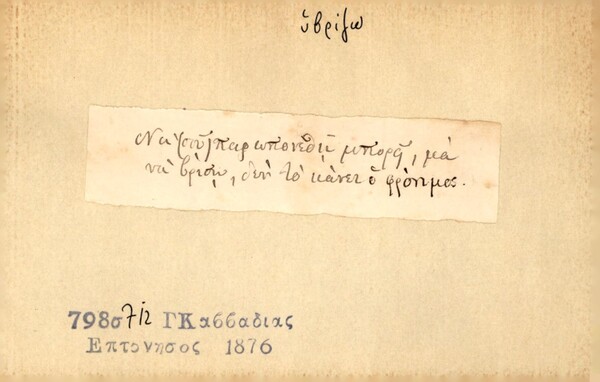 ὑβρίζω
Νὰ [σοῦ] παραπονεθῇ μπορεῖ, μὰ
νὰ βρίσῃ, δὲν τὸ κάνει ὁ φρόνιμος.
798σ 712 ΓΚασσαδιας
Επτονησος 1876